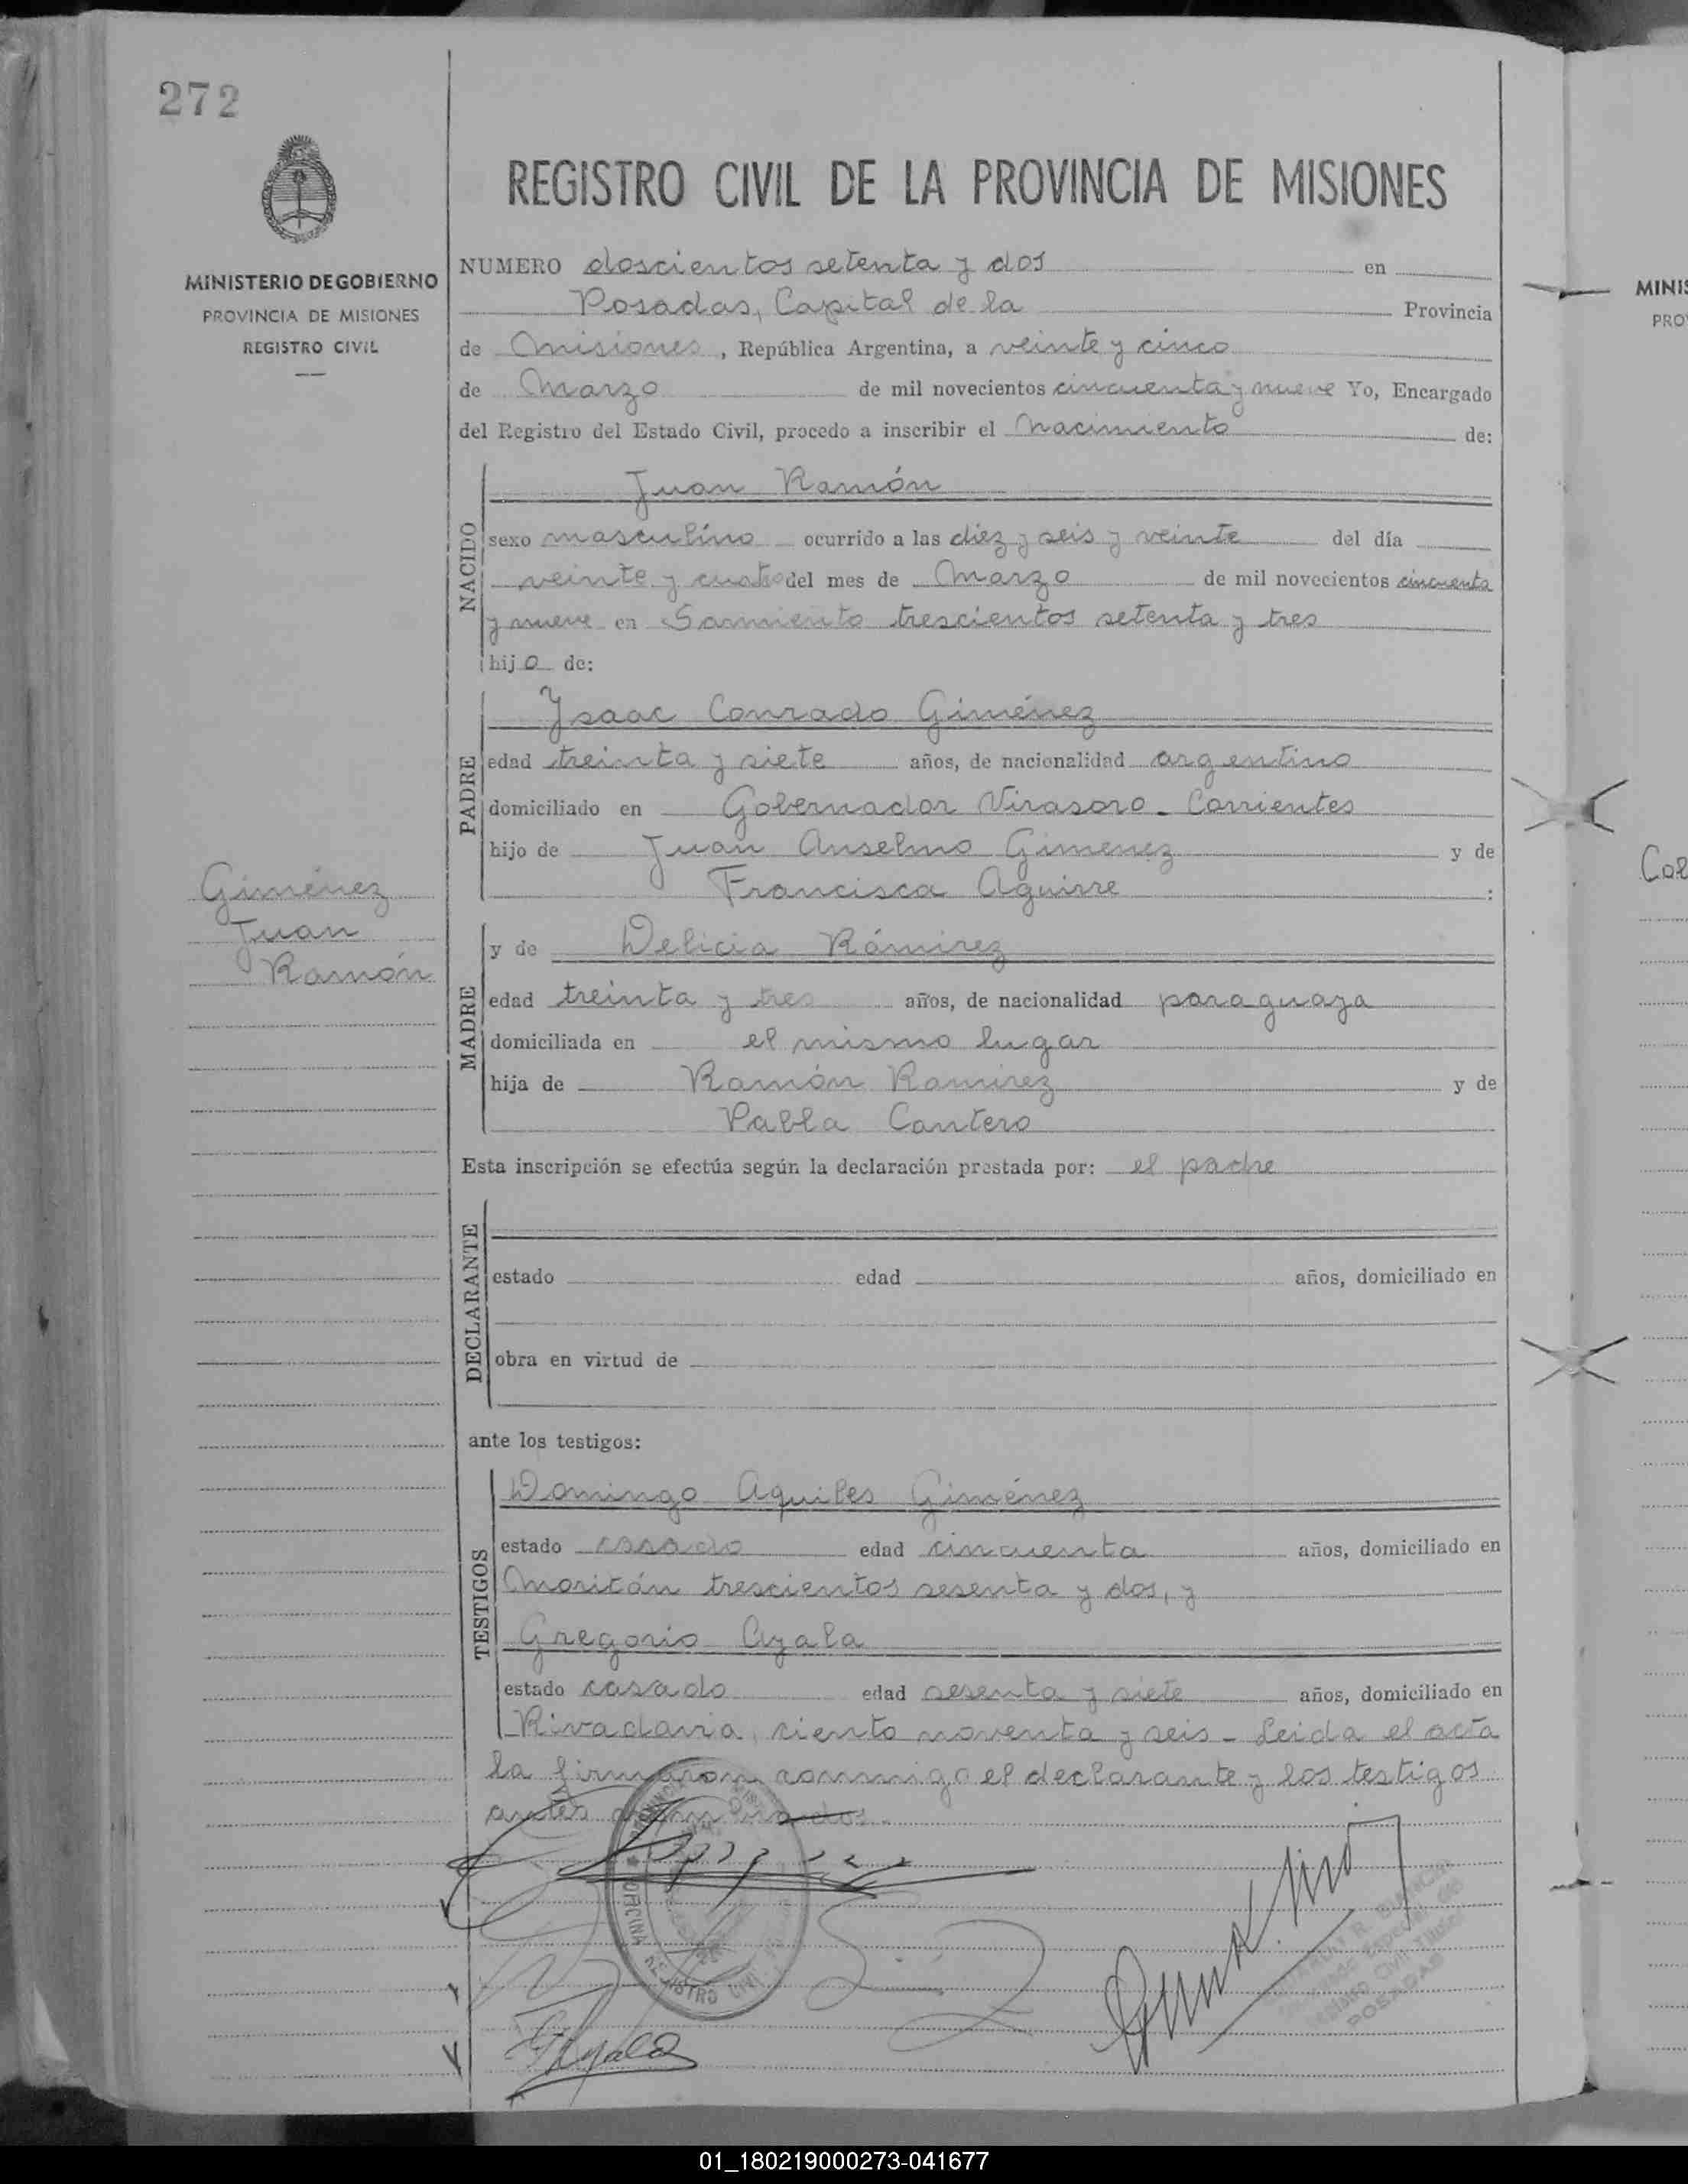 272
MINISTERIO DE GOBIERNO
PROVINCIA DE MISIONES
REGISTRO CIVIL
REGISTRO CIVIL DE LA PROVINCIA DE MISIONES
NUMERO doscientos setenta y dos en
Posadas, Capital de la Provincia
de Misiones, República Argentina, a veinte y cinco
de Marzo de mil novecientos cincuenta y nueve Yo, Encargado
del Registro del Estado Civil, procedo a inscribir el Nacimiento de:
NACIDO
Juan Ramón
sexo masculino ocurrido a las diez y seis y veinte del día
veinte y cuatro del mes de Marzo de mil novecientos cincuenta
y nueve en Sarmiento trescientos setenta y tres
hijo de:
PADRE
Ysaac Conrado Giménez
edad treinta y siete años, de nacionalidad argentino
domiciliado en Gobernador Virasoro - Corrientes
hijo de Juan Anselmo Gimenez y de
Francisca Aguirre :
Giménez
Juan
Ramón
MADRE
y de Delicia Rámirez
edad treinta y tres años, de nacionalidad paraguaya
domiciliada en el mismo lugar
hija de Ramón Ramirez y de
Pabla Cantero
Esta inscripción se efectúa según la declaración prestada por: el padre
DECLARANTE
estado edad años, domiciliado en
obra en virtud de
ante los testigos:
TESTIGOS
Domingo Aquiles Giménez
estado casado edad cincuenta años, domiciliado en
Moritán trescientos sesenta y dos, y
Gregorio Ayala
estado casado edad sesenta y siete años, domiciliado en
Rivadavia, ciento noventa y seis - Leida el acta
la firmaron conmigo el declarante y los testigos
antes nominados.
OFICINA REGISTRO CIVIL
GAyala
POSADAS
MINIS
PRO
Col
01_180219000273-041677